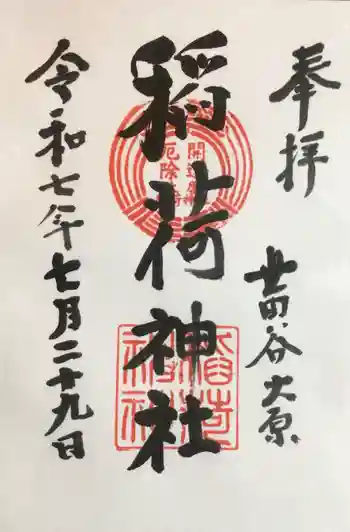 奉拝
世田谷大原
稲荷神社
開運
厄除
稲荷
神社
令和七年七月二十九日